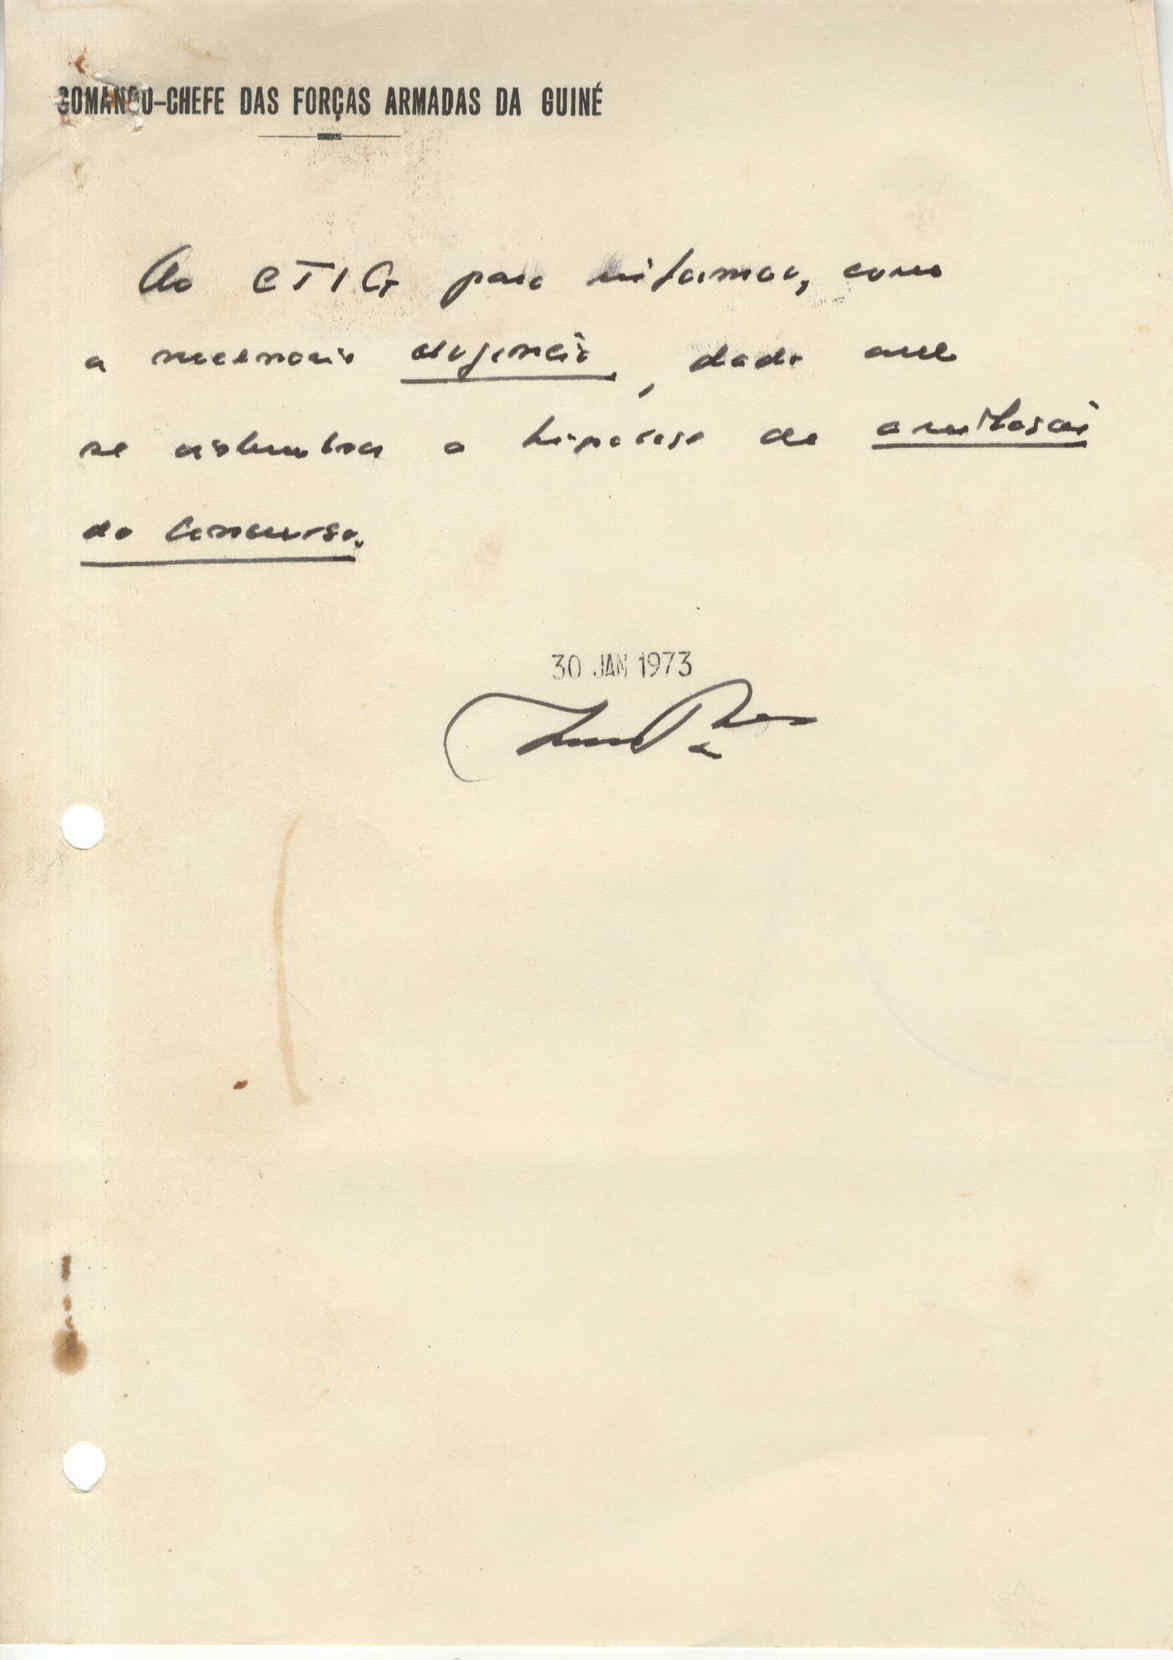 COMANDO-CHEFE DAS FORÇAS ARMADAS DA GUINÉ
Ao CTIG para informar, com
a necessária urgência, dado que
se vislumbra a hipótese de anulação
do Concurso.
30 JAN 1973